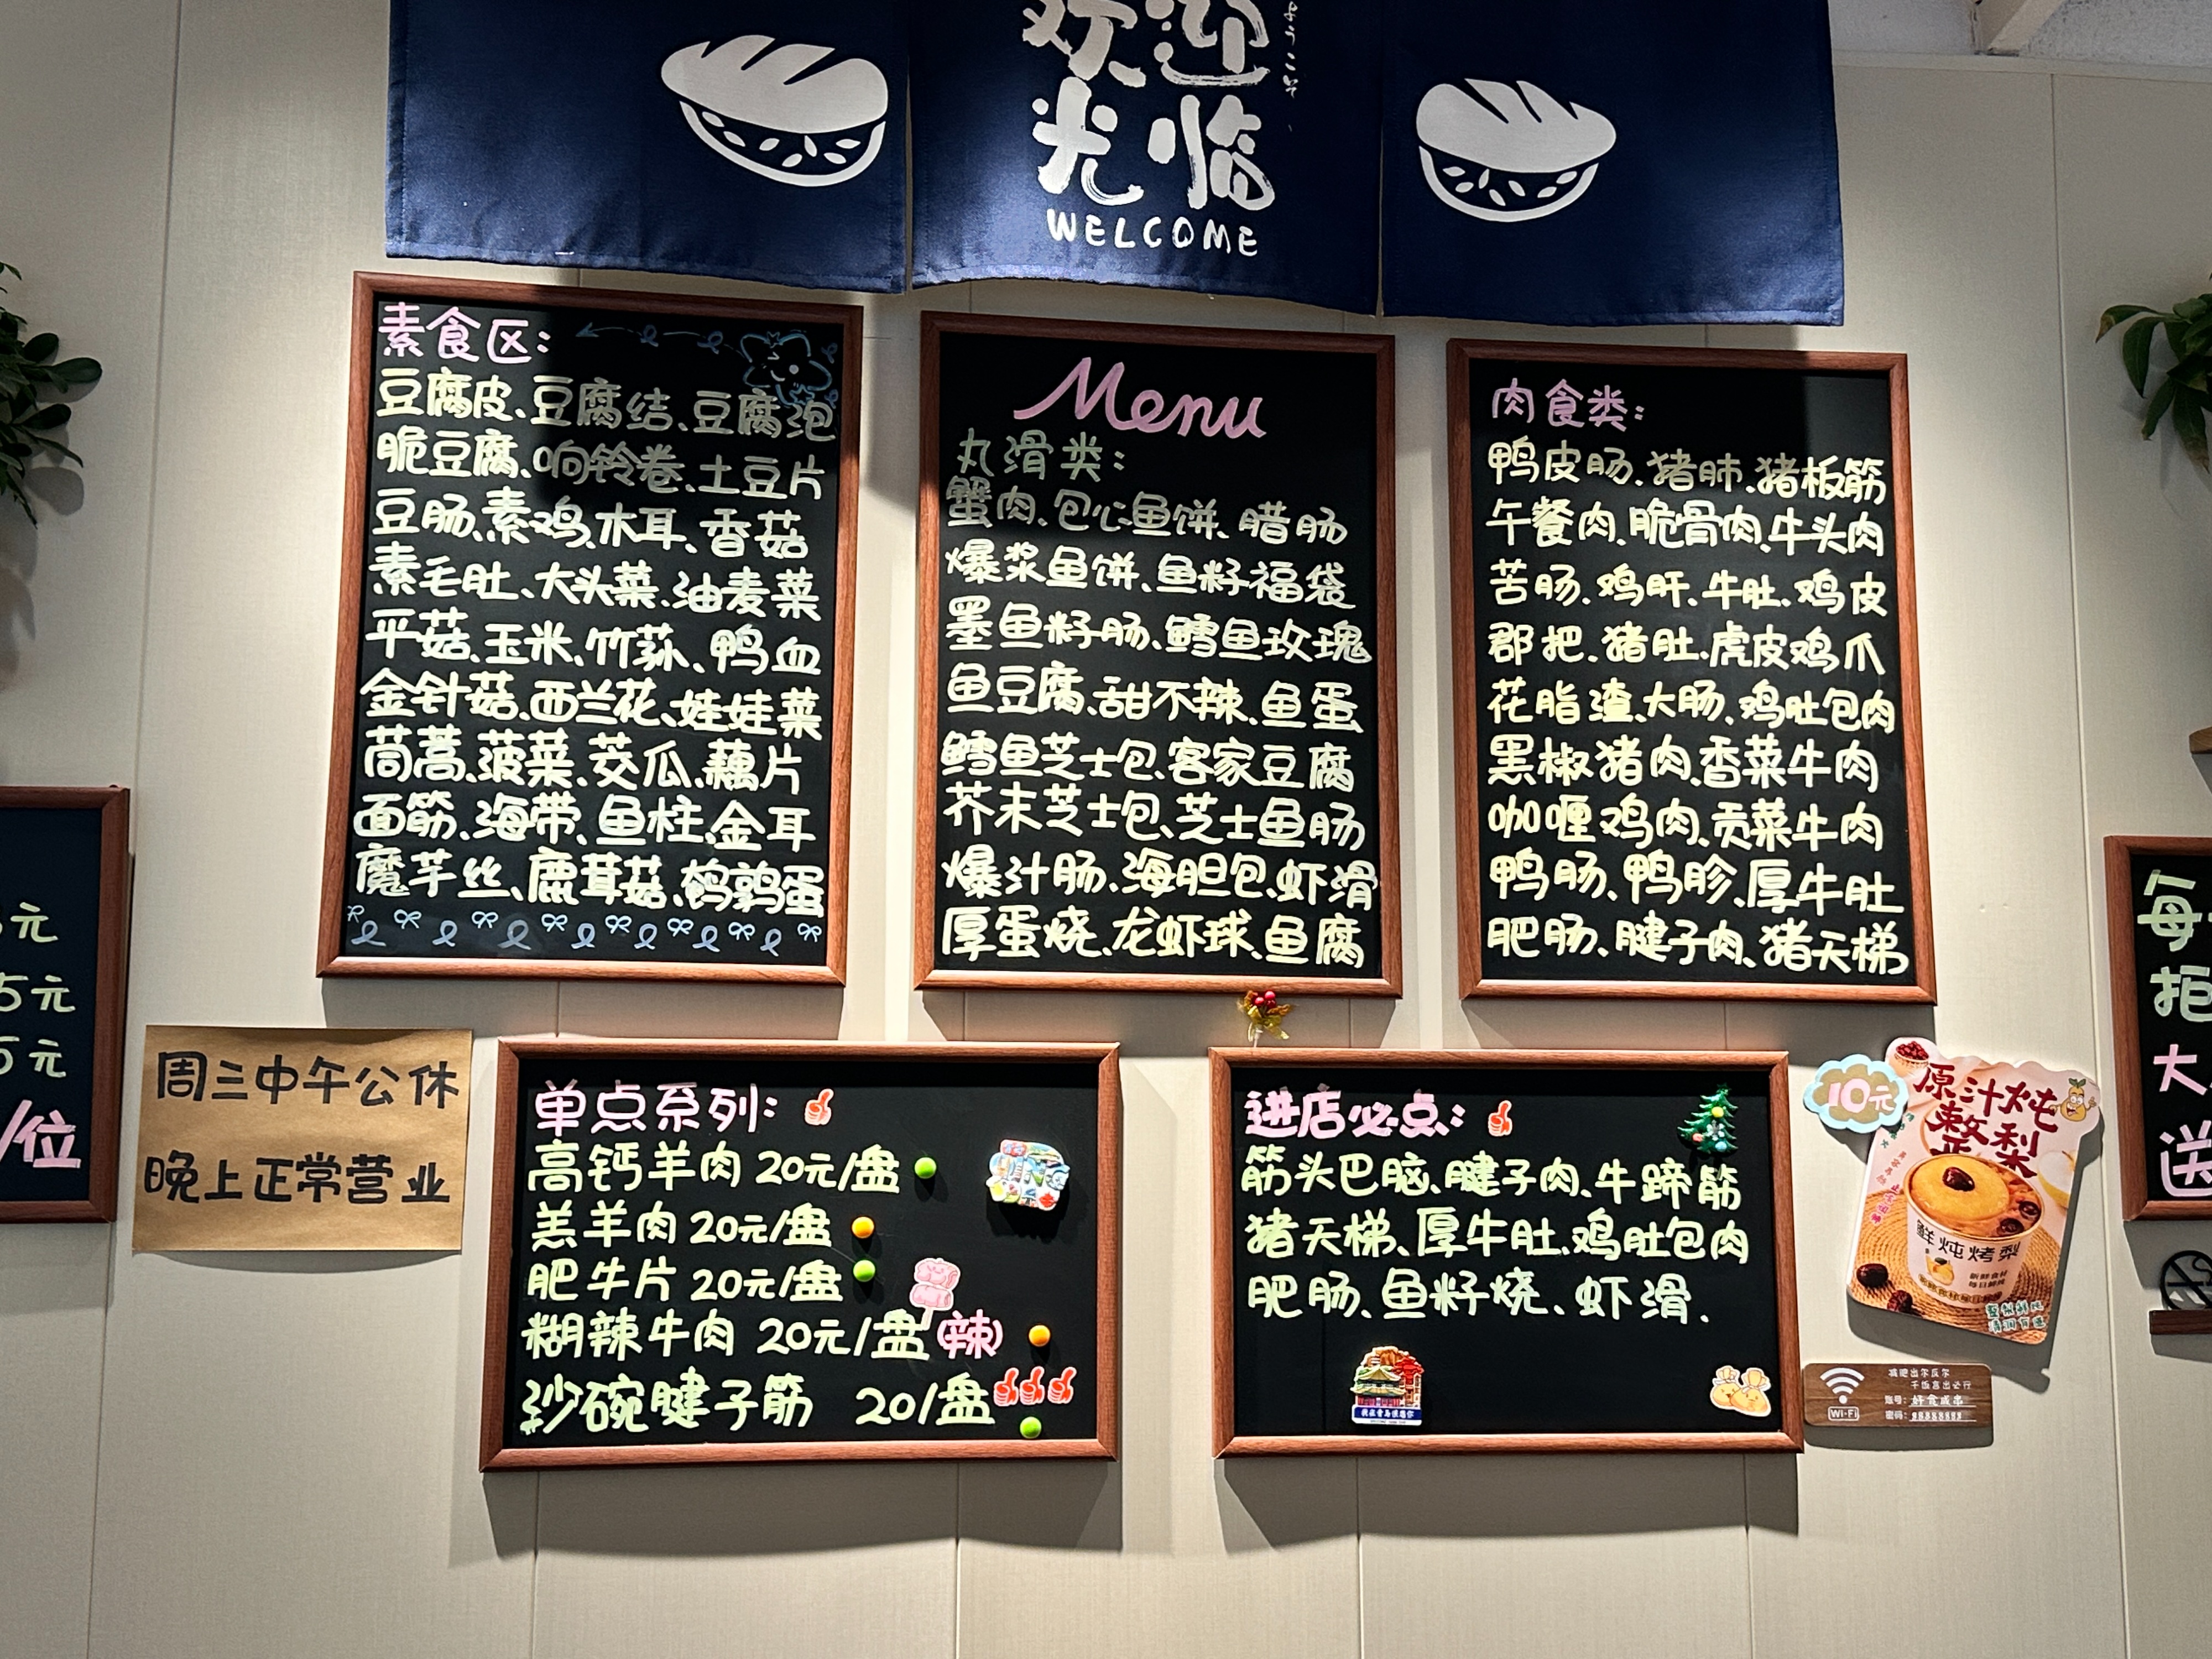 欢迎
光临
ようこそ
WELCOME
素食区:
豆腐皮、豆腐结、豆腐泡
脆豆腐、响铃卷、土豆片
豆肠、素鸡、木耳、香菇
素毛肚、大头菜、油麦菜
平菇、玉米、竹荪、鸭血
金针菇、西兰花、娃娃菜
茼蒿、菠菜、茭瓜、藕片
面筋、海带、鱼柱、金耳
魔芋丝、鹿茸菇、鹌鹑蛋
Menu
丸滑类:
蟹肉、包心鱼饼、腊肠
爆浆鱼饼、鱼籽福袋
墨鱼籽肠、鳕鱼玫瑰
鱼豆腐、甜不辣、鱼蛋
鳕鱼芝士包、客家豆腐
芥末芝士包、芝士鱼肠
爆汁肠、海胆包、虾滑
厚蛋烧、龙虾球、鱼腐
肉食类:
鸭皮肠、猪肺、猪板筋
午餐肉、脆骨肉、牛头肉
苦肠、鸡肝、牛肚、鸡皮
郡把、猪肚、虎皮鸡爪
花脂渣、大肠、鸡肚包肉
黑椒猪肉、香菜牛肉
咖喱鸡肉、贡菜牛肉
鸭肠、鸭胗、厚牛肚
肥肠、腱子肉、猪天梯
元
5元
5元
/位
周三中午公休
晚上正常营业
单点系列:
高钙羊肉 20元/盘
羔羊肉 20元/盘
肥牛片 20元/盘
糊辣牛肉 20元/盘(辣)
沙碗腱子筋 20/盘
进店必点:
筋头巴脑、腱子肉、牛蹄筋
猪天梯、厚牛肚、鸡肚包肉
肥肠、鱼籽烧、虾滑.
10元
原汁炖
整梨
鲜炖烤梨
新鲜食材
每日鲜炖
Wi-Fi
减肥出尔反尔
干饭言出必行
账号:
密码: 88888888
每
拒
大
送